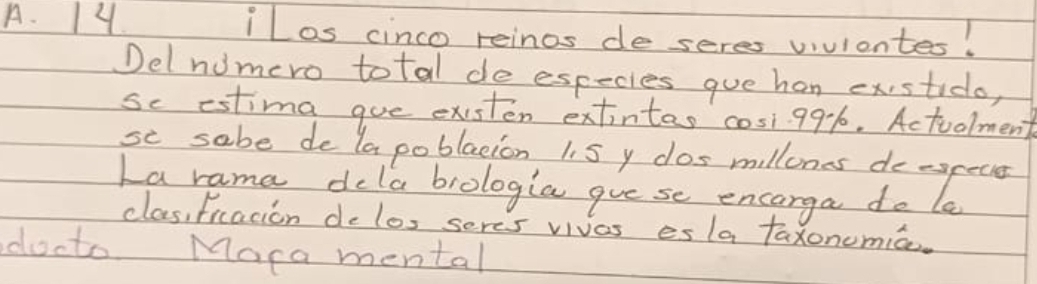 A. 14 ¡Los cinco reinos de seres vivientes!
Del número total de especies que han existido,
se estima que existen extintas casi 99%. Actualment
se sabe de la población 1.5 y dos millones de especies
La rama de la biología que se encarga de la
clasificación de los seres vivos es la taxonomía.
ducto Mapa mental